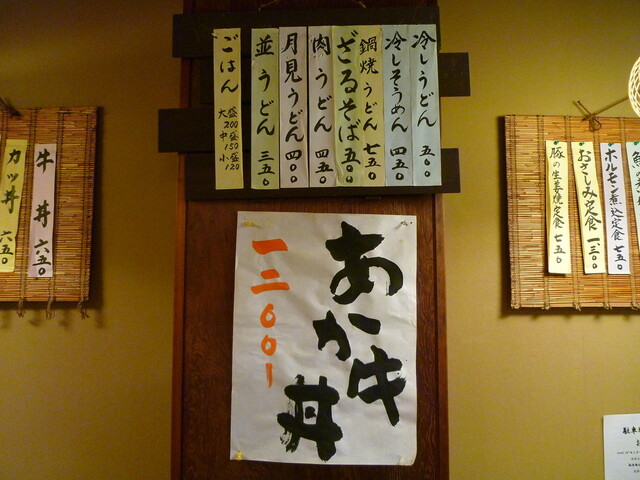 冷しうどん 五〇〇
冷しそうめん 四五〇
鍋焼うどん 七五〇
ざるそば 五〇〇
肉うどん 四五〇
月見うどん 四〇〇
並うどん 三五〇
ごはん 大盛200 中盛150 小盛120
あか牛丼
一二〇〇
牛丼 六五〇
カツ丼 六五〇
おさしみ定食 一三〇〇
ホルモン煮込定食 七五〇
豚の生姜焼定食 七五〇